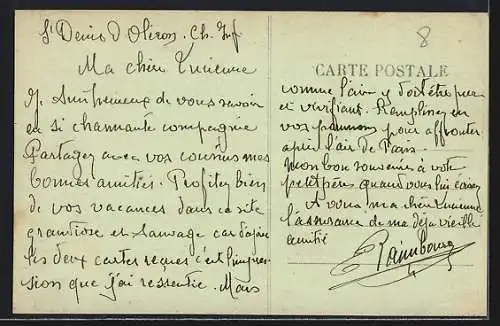 St Denis d'Oléron. Ch. Inf
Ma chère Lucienne
Je suis heureux de vous savoir
en si charmante compagnie
Partagez avec vos cousins mes
bonnes amitiés. Profitez bien
de vos vacances dans ce site
grandiose et sauvage car d'après
les deux cartes reçues c'est l'impres-
sion que j'ai ressentie. Mais
8
CARTE POSTALE
comme l'air y doit être pur
et vivifiant. Remplissez en
vos poumons pour affronter
après l'air de Paris.
Mon bon souvenir à votre
petit père quand vous lui
A vous ma chère Lucienne
l'assurance de ma déjà vieille
amitié
Paimboeuf